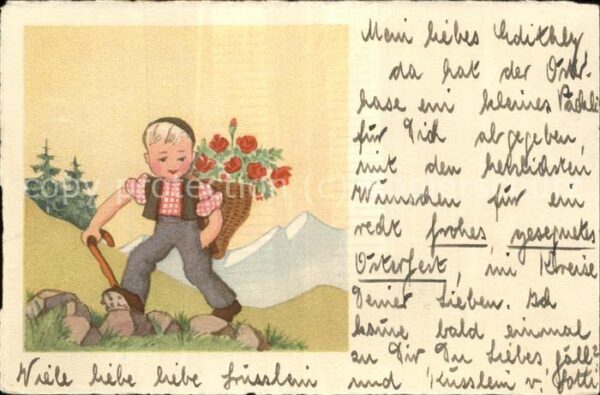 Mein liebes Edithly,
da hat der Oster-
hase ein kleines Päckli
für Dich abgegeben,
mit den herzlichsten
Wünschen für ein
recht frohes, gesegnetes
Osterfest, im Kreise
Deiner Lieben. Ich
komme bald einmal
zu Dir, Du Liebes, gäll?
Viele liebe liebe Grüsslein
und Küsslein v. Gotti